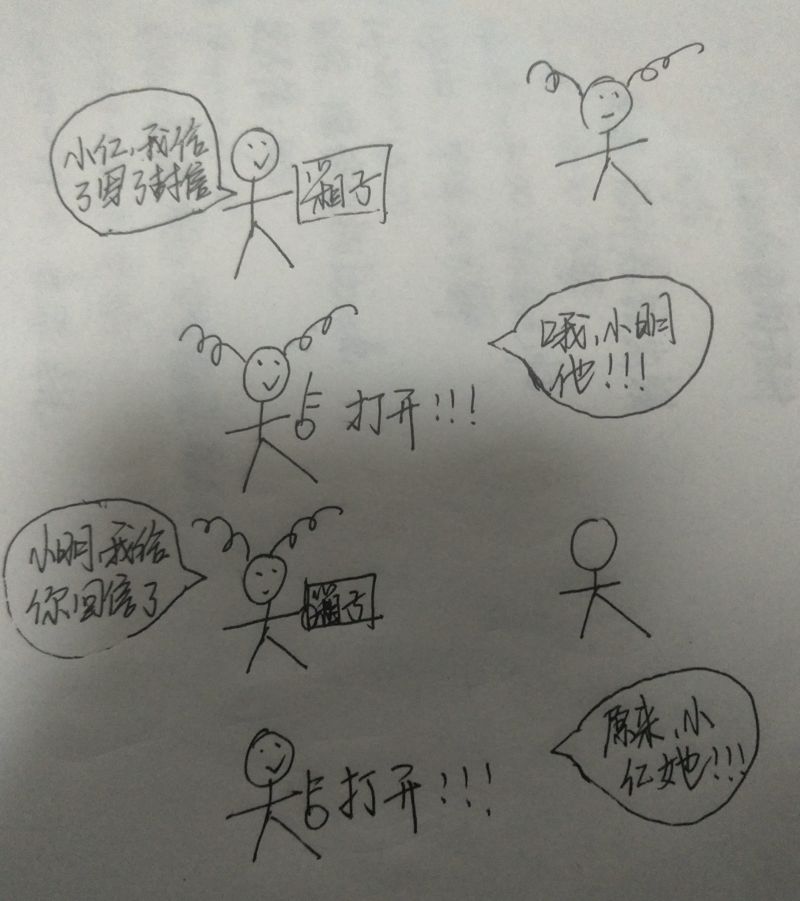 小红,我给
了男了封信
箱子
哦,小明
他!!!
打开!!!
小明,我给
你回信了
箱子
原来,小
红她!!!
打开!!!